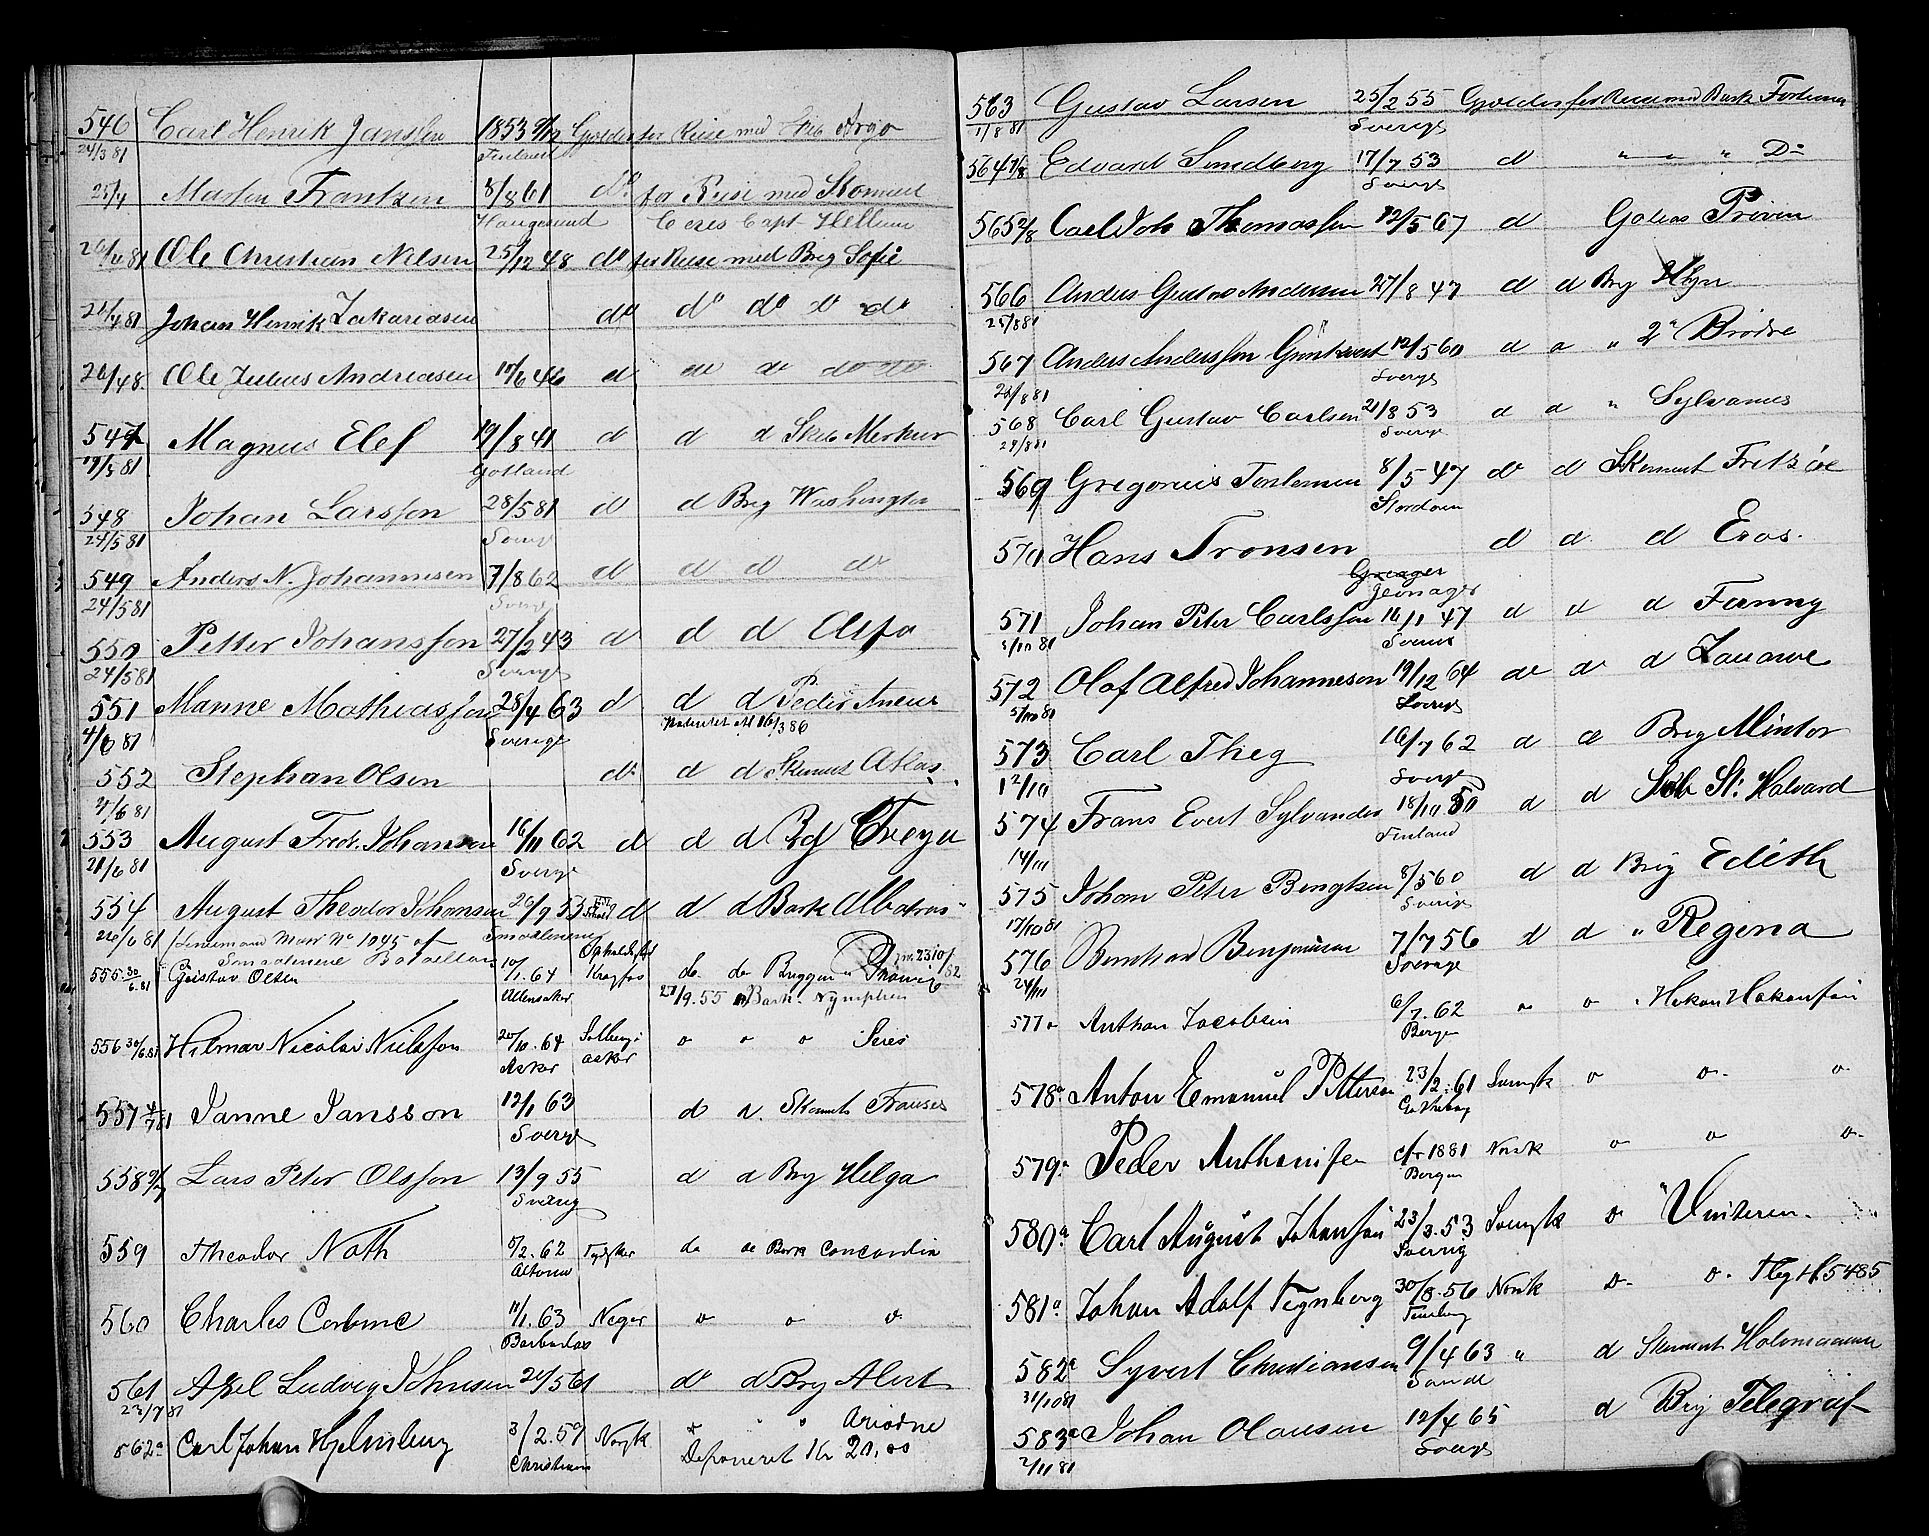 546 Carl Henrik Janssen 1853 9/12 Gjælder for Reise med Skib Argo
24/3 81 Finland
25/4 Marten Frantzen 8/8 61 do for Reise med Skonnert
Haugesund Ceres Capt Hellum
26/4 81 Ole Christian Nilsen 25/12 48 do for Reise med Brig Sofie
26/4 81 Johan Henrik Zakariasen do do do do do
26/4 8 Ole Julius Andreasen 10/6 46 d do do do
547 Magnus Elef 19/8 41 d d d Skib Merkur
19/5 81 Gotland
548 Johan Larsson 28/5 81 d d Brig Washington
24/5 81 Sverige
549 Anders N. Johannesen 7/8 62 d d d d
24/5 81 Sverge
550 Petter Johansson 27/2 43 d d d Alfa
24/5 81 Sverige
551 Manne Mathiasson 28/4 63 d d d Peder Aneus
4/6 81 Sverige 16/3 86
552 Stephan Olsen d d d Skonnert Atlas
4/6 81
553 August Fredr. Johanson 16/11 62 d d d Brg Freya
21/6 81 Sverge
554 August Theodor Johansen 26/9 53 d d d Bark Albatros
26/6 81 Lensmand Marr No 1045 af Smaalenene
Smaalenene Bataillon
555 30/6.81 Gustav Olsen 10/1.64 Opholdssted Kragfos do do Briggen
Ullensaker 27/9.55 Bark. Nymphen
556 30/6.81 Hilmar Nicolai Nielsson 20/10.64 Solberg i o o o Seres
Asker asker
557 4/7 81 Janne Jansson 12/1 63 d d. Skonnert Frauses
Sverge
558 9/7 Lars Peter Olsson 13/9 55 d d Brg Helga
Sverig
559 Theodor Noth 5/2.62 Tydsker do do Bark Concordia
Altona
560 Charles Corbine 11/1.63 Neger o o o
Barbados
561 Axel Ludvig Johnsen 20/5 61 d d Brg Alert
23/7 81
562 Carl Johan Hjelmberg 3/2.59 Nosk " " Ariadne
Christiania Deponeret Kr 20,00
563 Gustav Larsen 25/2 55 Gjælder for Reise med Bark Fortuna
1/8 81 Sverige
564 1/8 Edvard Sundberg 17/7 53 d " " " Do
Sverge
565 2/8 Carl Joh Thomassen 12/5 67 d Galeas Prøven
566 Anders Gustav Andersen 27/8 47 d d Brg
25/8 81
567 Anders Anderssen 12/5 60 d d " 2de Brødre
26/8 81 Sverge
568 Carl Gustav Carlsen 21/8 53 d d " Sylvanus
29/8 81 Sverge
569 Gregorius Torstensen 8/5 47 d d Skonnert Fritzöe
Stordøen
570 Hans Tronsen d d d Eros.
Jevnager
571 Johan Peter Carlsson 16/1 47 d d d Fanny
5/10 81 Sverige
572 Olaf Alfred Johanneson 19/12 64 d d d
5/10 81 Sverige
573 Carl Theg 16/7 62 d d Brig Mentor
12/10 Sverge
574 Frans Evert Sylvander 18/10 50 d d Skib St. Halvard
14/10 Finland
575 Johan Peter Bengtsen 8/5 60 d d Brig Edith
17/10 81 Sverige
576 Bernhard Benjaminsen 7/7 56 d d " Regina
24/10 Sverige
577 Anthon Jacobsen 6/7.62 o o " Hakon Hakonsøn
Bergen
578 Anton Emanuel Petterson 23/2.61 Svensk o o o
579 Peder Anthonisen 1881 Norsk o o o
Bergen
580 Carl August Johansson 23/3.53 Svensk o "
Sverrig
581 Johan Adolf Tegnberg 30/8.56 Norsk o o.
582 Syvert Christiansen 9/4 63 " d Skonnert
31/10 81 Sande
583 Johan Olausen 12/4 65 d Brig Telegraf
2/11 81 Sverge